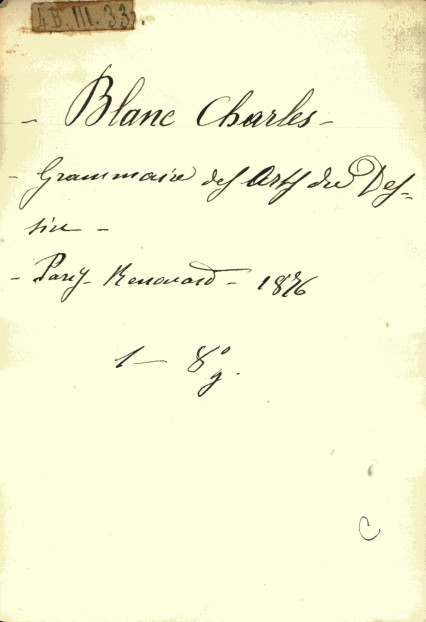 4B.III.33
- Blanc Charles -
- Grammaire des Arts du Des=
sin -
- Paris - Renouard - 1876
1 - 8º
g.
C